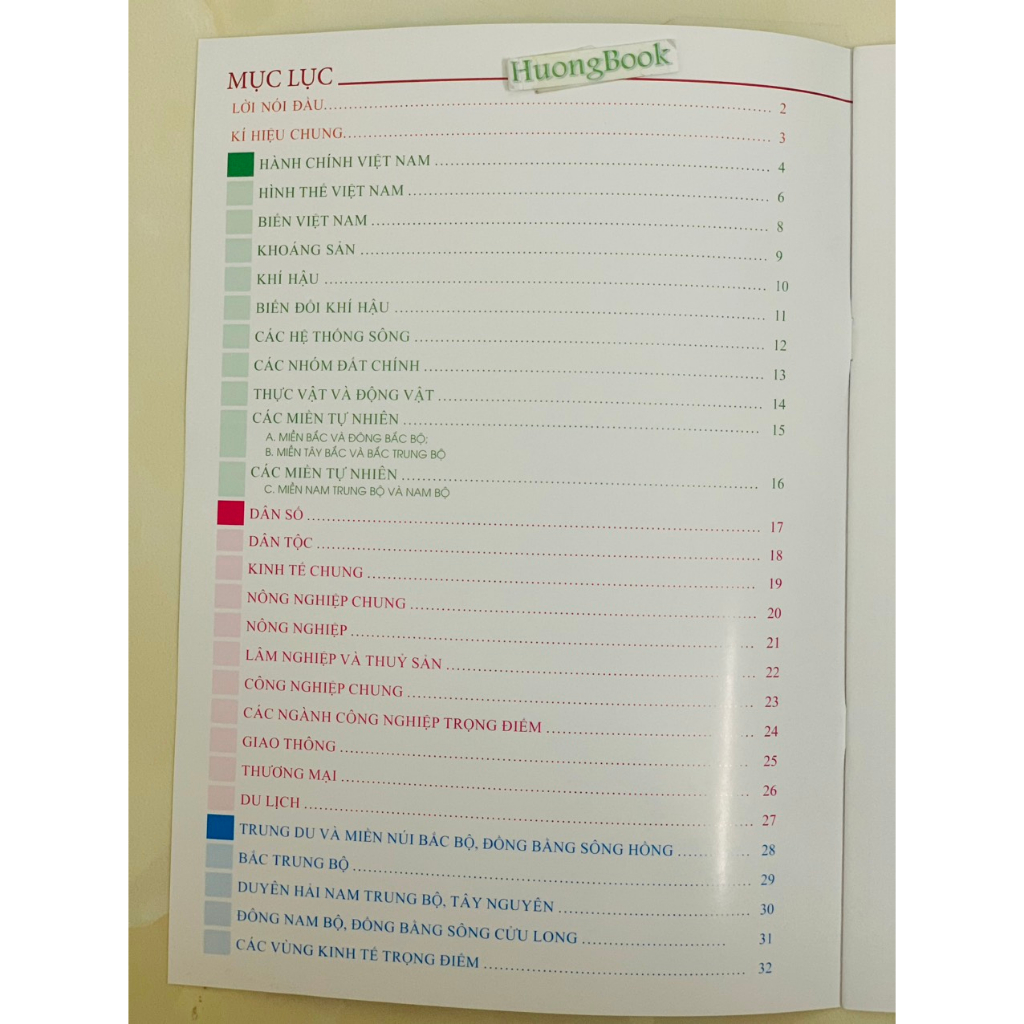 MỤC LỤC
HuongBook
LỜI NÓI ĐẦU........ 2
KÍ HIỆU CHUNG........ 3
HÀNH CHÍNH VIỆT NAM ........ 4
HÌNH THỂ VIỆT NAM ........ 6
BIỂN VIỆT NAM ........ 8
KHOÁNG SẢN ........ 9
KHÍ HẬU ........ 10
BIẾN ĐỔI KHÍ HẬU ........ 11
CÁC HỆ THỐNG SÔNG ........ 12
CÁC NHÓM ĐẤT CHÍNH ........ 13
THỰC VẬT VÀ ĐỘNG VẬT ........ 14
CÁC MIỀN TỰ NHIÊN ........ 15
A. MIỀN BẮC VÀ ĐÔNG BẮC BỘ;
B. MIỀN TÂY BẮC VÀ BẮC TRUNG BỘ
CÁC MIỀN TỰ NHIÊN ........ 16
C. MIỀN NAM TRUNG BỘ VÀ NAM BỘ
DÂN SỐ ........ 17
DÂN TỘC ........ 18
KINH TẾ CHUNG ........ 19
NÔNG NGHIỆP CHUNG ........ 20
NÔNG NGHIỆP ........ 21
LÂM NGHIỆP VÀ THUỶ SẢN ........ 22
CÔNG NGHIỆP CHUNG ........ 23
CÁC NGÀNH CÔNG NGHIỆP TRỌNG ĐIỂM ........ 24
GIAO THÔNG ........ 25
THƯƠNG MẠI ........ 26
DU LỊCH ........ 27
TRUNG DU VÀ MIỀN NÚI BẮC BỘ, ĐỒNG BẰNG SÔNG HỒNG ........ 28
BẮC TRUNG BỘ ........ 29
DUYÊN HẢI NAM TRUNG BỘ, TÂY NGUYÊN ........ 30
ĐÔNG NAM BỘ, ĐỒNG BẰNG SÔNG CỬU LONG ........ 31
CÁC VÙNG KINH TẾ TRỌNG ĐIỂM ........ 32